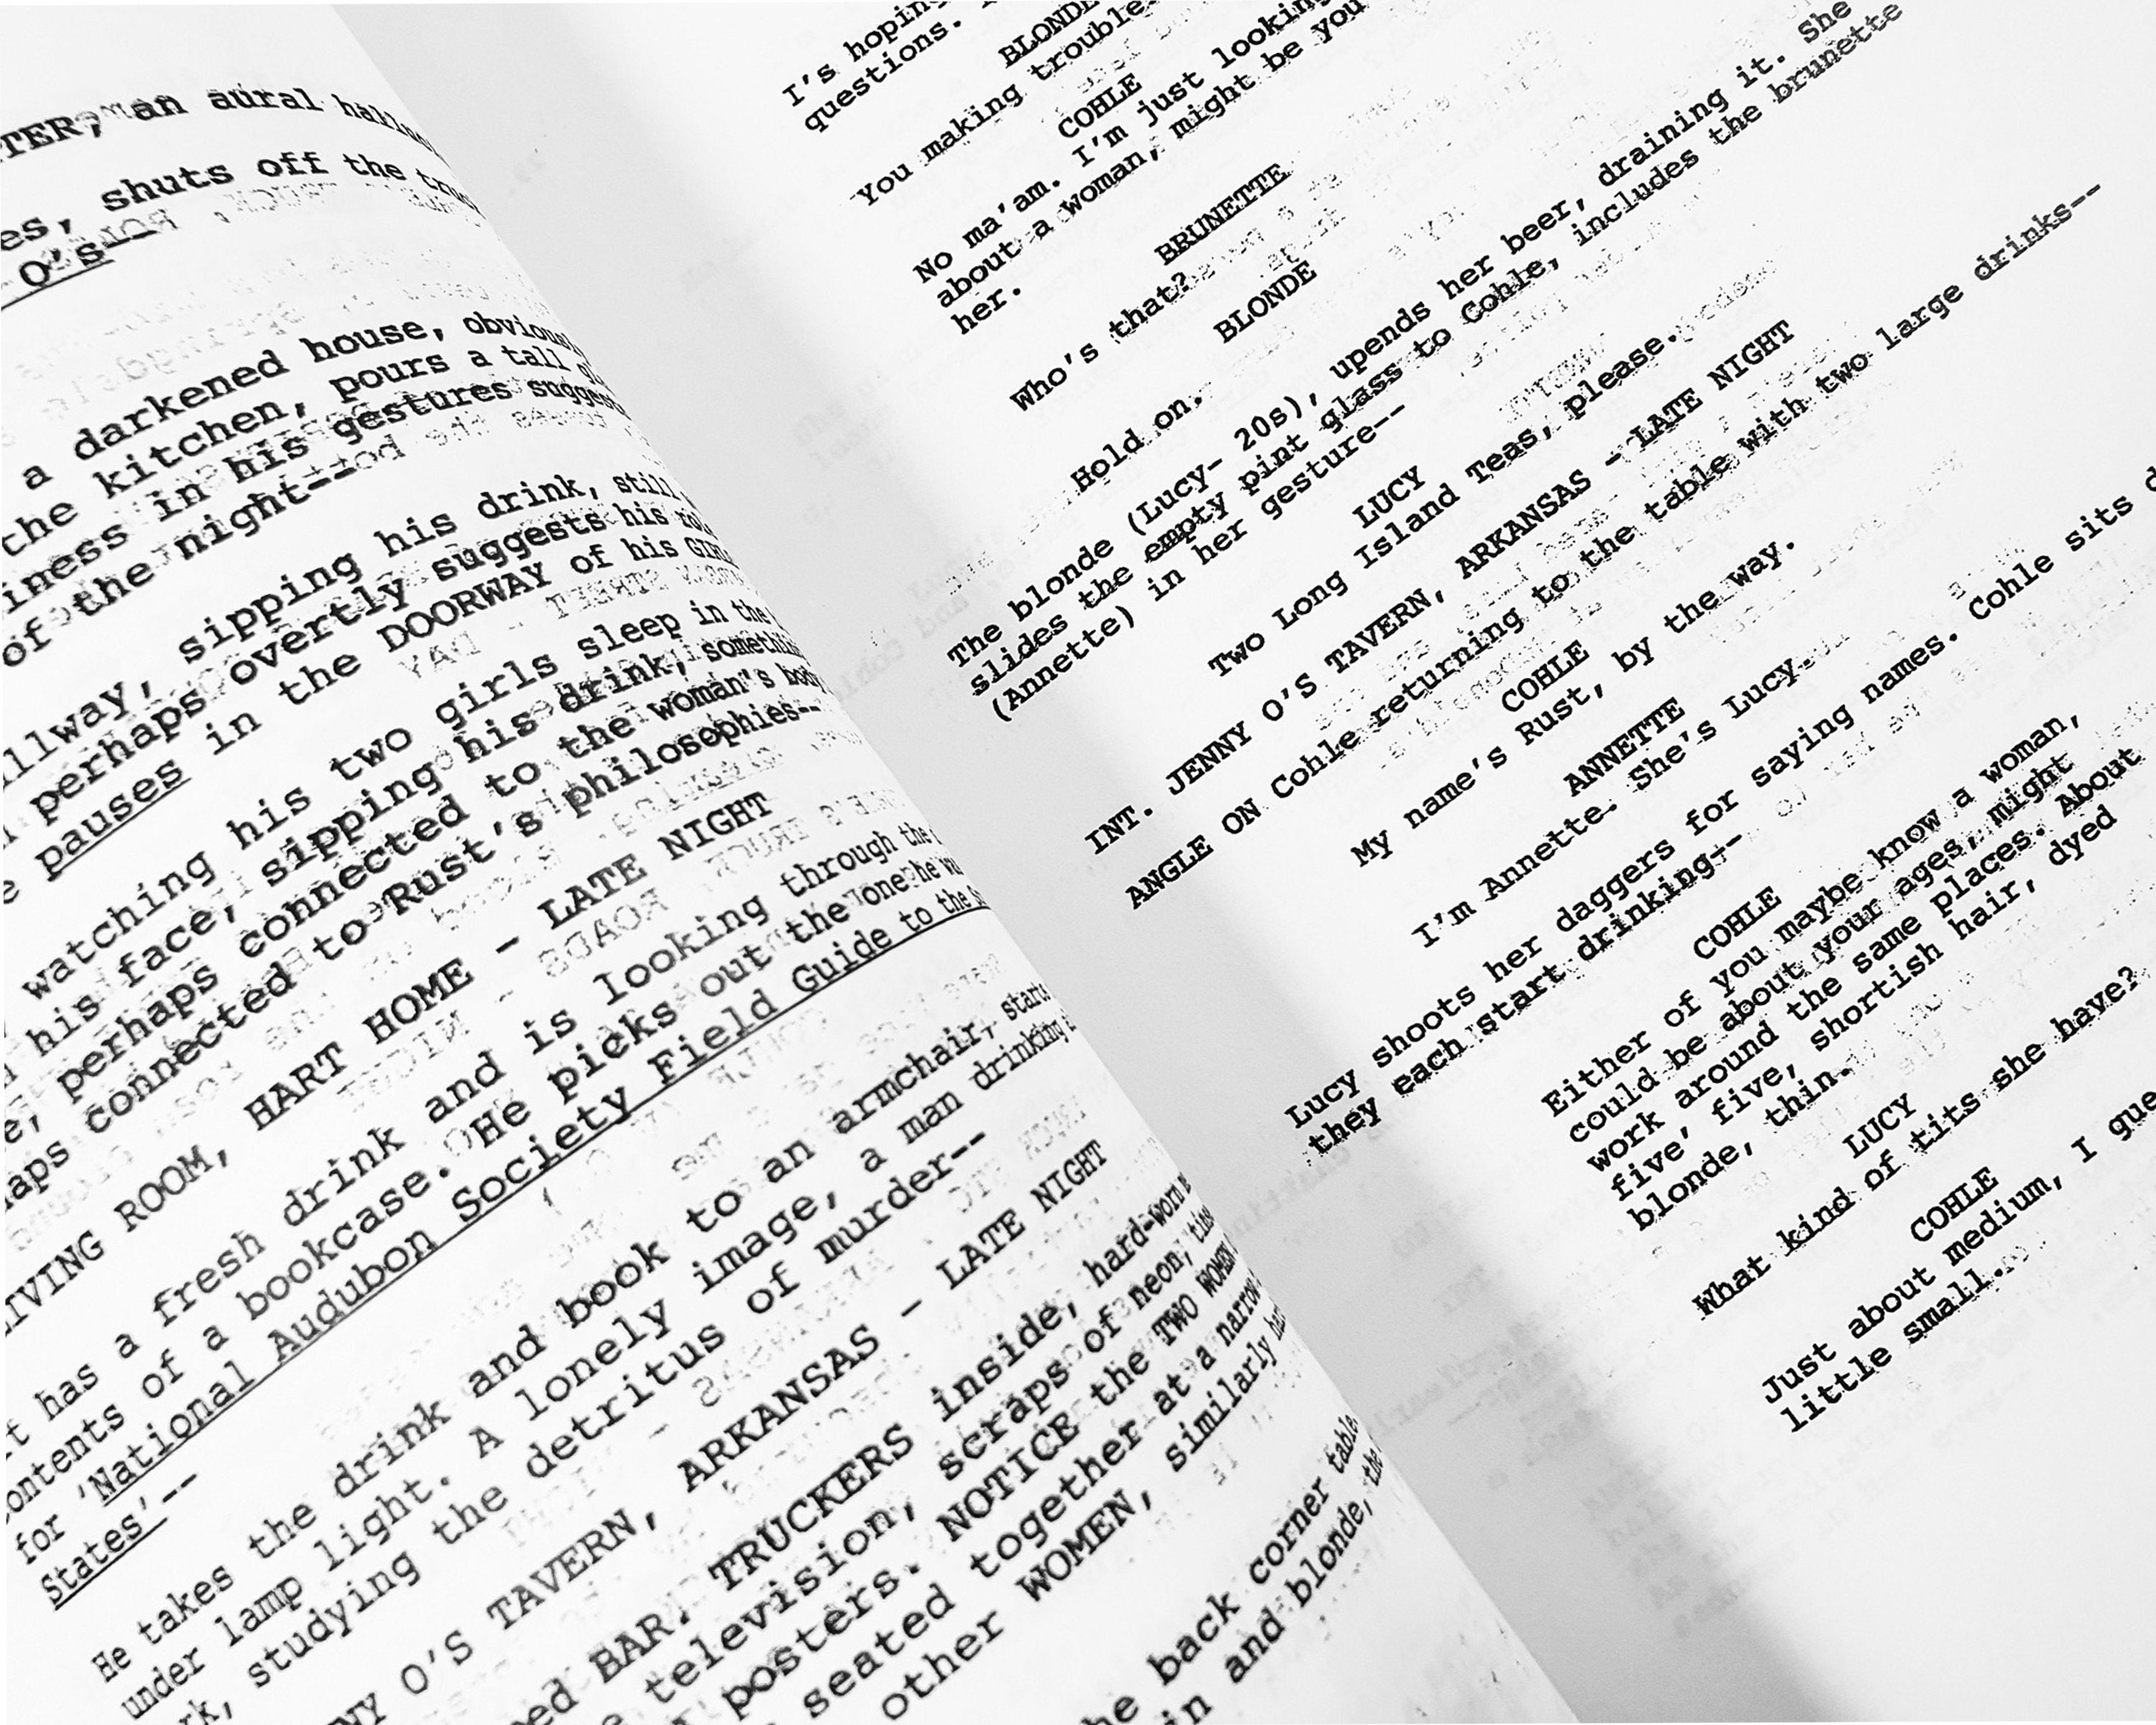 TER, an aural
es, shuts off the
O's
a darkened house,
the kitchen, pours a tall
iness in his gestures
of the night--
sipping his drink, still
perhaps overtly suggests his
pauses in the DOORWAY of his
watching his two girls sleep in the
his face, sipping his drink,
perhaps connected to the woman's body
connected to Rust's philosophies--
LIVING ROOM, HART HOME - LATE NIGHT
has a fresh drink and is looking through the
contents of a bookcase. He picks out the one he
for 'National Audubon Society Field Guide to the
States'--
He takes the drink and book to an armchair,
under lamp light. A lonely image, a man drinking
studying the detritus of murder--
O'S TAVERN, ARKANSAS - LATE NIGHT
BAR. TRUCKERS inside, hard-worn
television, scraps of neon,
posters. NOTICE the TWO WOMEN
seated together at a narrow
other WOMEN, similarly
back corner table,
in and blonde, the
I's hoping
questions.
BLONDE
You making trouble
COHLE
No ma'am. I'm just looking
about a woman, might be you
her.
BRUNETTE
Who's that?
BLONDE
Hold on.
The blonde (Lucy- 20s), upends her beer, draining it. She
slides the empty pint glass to Cohle, includes the brunette
(Annette) in her gesture--
LUCY
Two Long Island Teas, please.
INT. JENNY O'S TAVERN, ARKANSAS - LATE NIGHT
ANGLE ON Cohle returning to the table with two large drinks--
COHLE
My name's Rust, by the way.
ANNETTE
I'm Annette. She's Lucy.
Lucy shoots her daggers for saying names. Cohle sits
they each start drinking--
COHLE
Either of you maybe know a woman,
could be about your ages, might
work around the same places. About
five' five, shortish hair, dyed
blonde, thin.
LUCY
What kind of tits she have?
COHLE
Just about medium, I
little small.